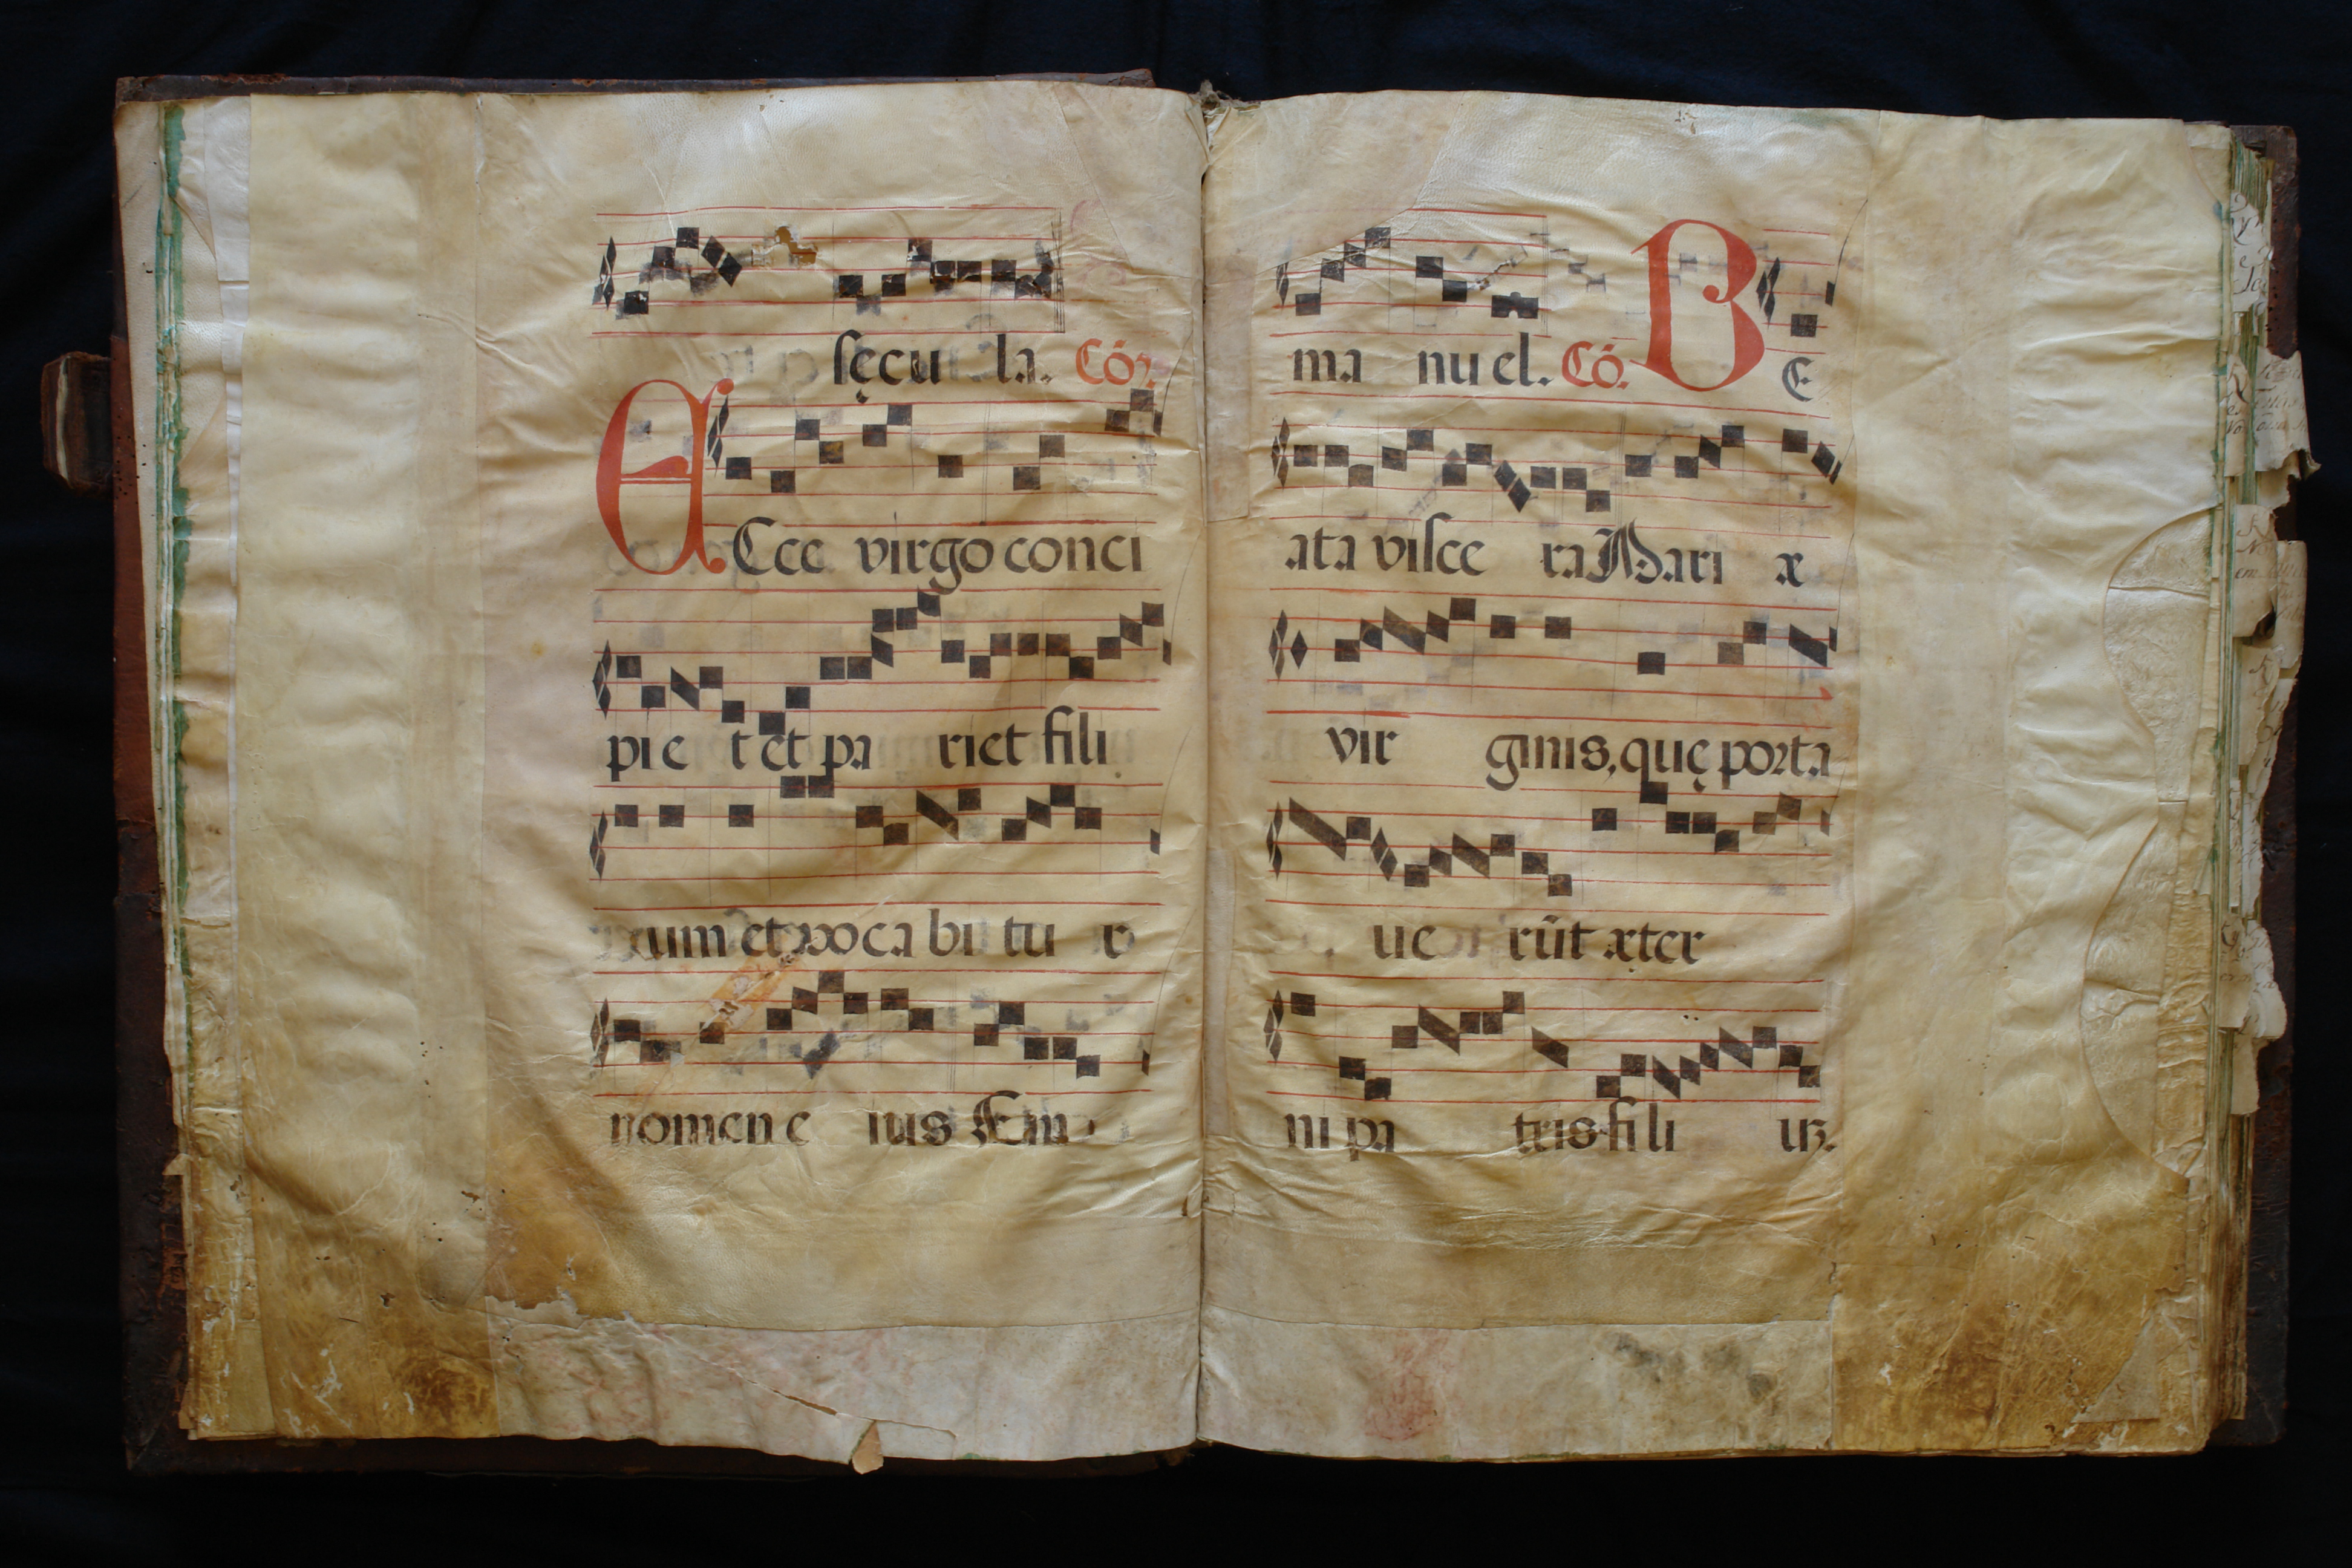 sęcu la. Cóʒ.
ECce virgo conci
pi e t et pa riet fili
um et voca bi tu r
nomen e ius Em
ma nu el. Có. B E
ata visce ra Mari æ
vir ginis, quę porta
ue rūt æter
ni pa tris fili uʒ.